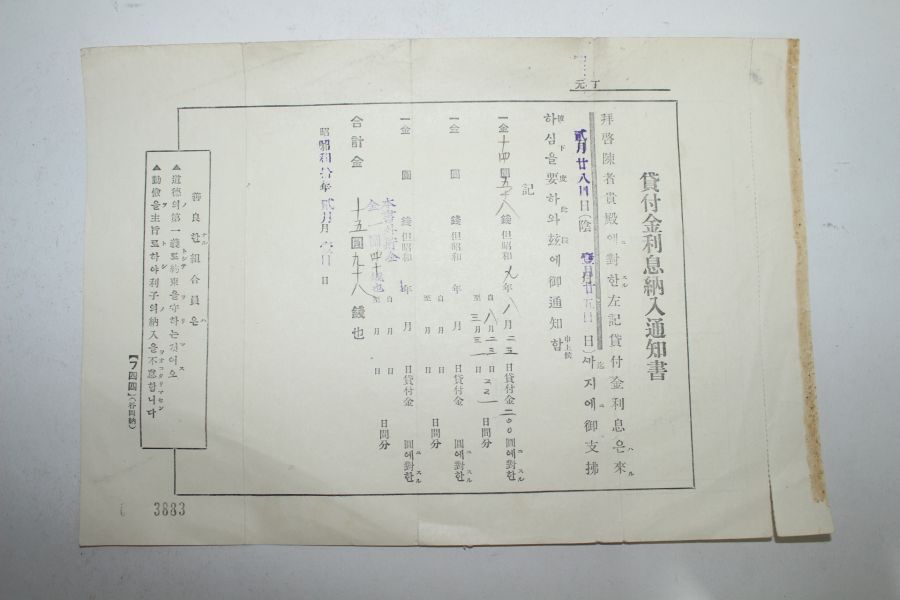 丁元
貸付金利息納入通知書
拜啓陳者貴殿에對한左記貸付金利息은來
貳月廿八日日(陰 壹月廿五日 日)사지에御支拂
하심을要하와玆에御通知함
記
一金十四圓五十八錢但昭和九年八月二三日貸付金二〇〇圓에對한
自八月二三日
至三月三一日
日間分
一金 圓 錢但昭和 年 月 日貸付金 圓에對한
自 月 日
至 月 日
日間分
一金 圓 錢但昭和 年 月 日貸付金 圓에對한
自 月 日
至 月 日
日間分
合計金 十五圓九十八錢也
昭和拾年貳月 日
善良한組合員은
▲道德의第一義로約束을守하는것이오
▲勤儉을主旨로하야利子의納入을不怠합니다
【ヲ四四】
3883